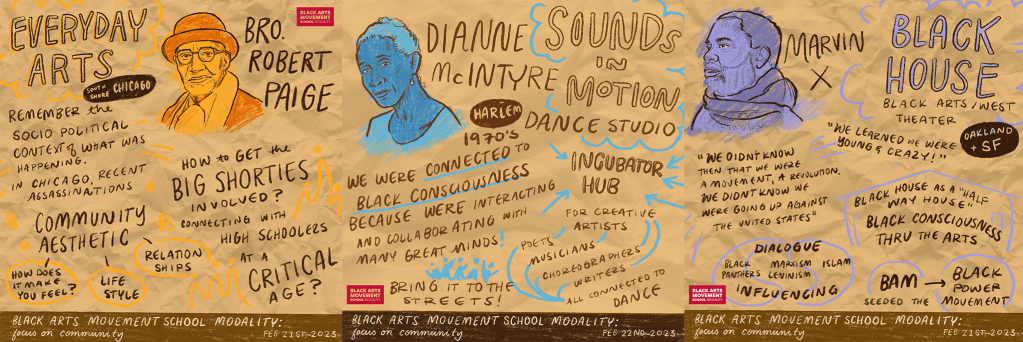 EVERYDAY
ARTS
SOUTH
SHORE CHICAGO
BRO.
ROBERT
PAIGE
BLACK ARTS
MOVEMENT
SCHOOL MODALITY
REMEMBER the
SOCIO POLITICAL
CONTEXT of WHAT WAS
HAPPENING.
IN CHICAGO, RECENT
ASSASSINATIONS
COMMUNITY
AESTHETIC
HOW DOES
IT MAKE
YOU FEEL?
LIFE
STYLE
RELATION
SHIPS
HOW to GET the
BIG SHORTIES
INVOLVED?
CONNECTING WITH
HIGH SCHOOLERS
AT A
CRITICAL
AGE?
BLACK ARTS MOVEMENT SCHOOL MODALITY:
focus on community
FEB 21ST 2023
DIANNE
McINTYRE
HARLEM
1970'S
SOUNDS
IN
MOTION
DANCE STUDIO
WE WERE CONNECTED TO
BLACK CONSCIOUSNESS
BECAUSE WERE INTERACTING
AND COLLABORATING WITH
MANY GREAT MINDS!
BRING IT TO THE
STREETS!
INCUBATOR
HUB
FOR CREATIVE
ARTISTS
POETS
MUSICIANS
CHOREOGRAPHERS
WRITERS
ALL CONNECTED TO
DANCE
BLACK ARTS
MOVEMENT
SCHOOL MODALITY
BLACK ARTS MOVEMENT SCHOOL MODALITY:
focus on community
FEB 22ND 2023
MARVIN
X
BLACK
HOUSE
BLACK ARTS/WEST
THEATER
OAKLAND
+ SF
"WE LEARNED WE WERE
YOUNG & CRAZY!"
"WE DIDN'T KNOW
THEN THAT WE WERE
A MOVEMENT, A REVOLUTION.
WE DIDN'T KNOW WE
WERE GOING UP AGAINST
THE UNITED STATES"
BLACK HOUSE AS A "HALF
WAY HOUSE"
BLACK CONSCIOUSNESS
THRU THE ARTS
DIALOGUE
BLACK
PANTHERS
MARXISM
LENINISM
ISLAM
INFLUENCING
BAM → BLACK
POWER
SEEDED THE MOVEMENT
BLACK ARTS
MOVEMENT
SCHOOL MODALITY
BLACK ARTS MOVEMENT SCHOOL MODALITY:
focus on community
FEB 21ST 2023